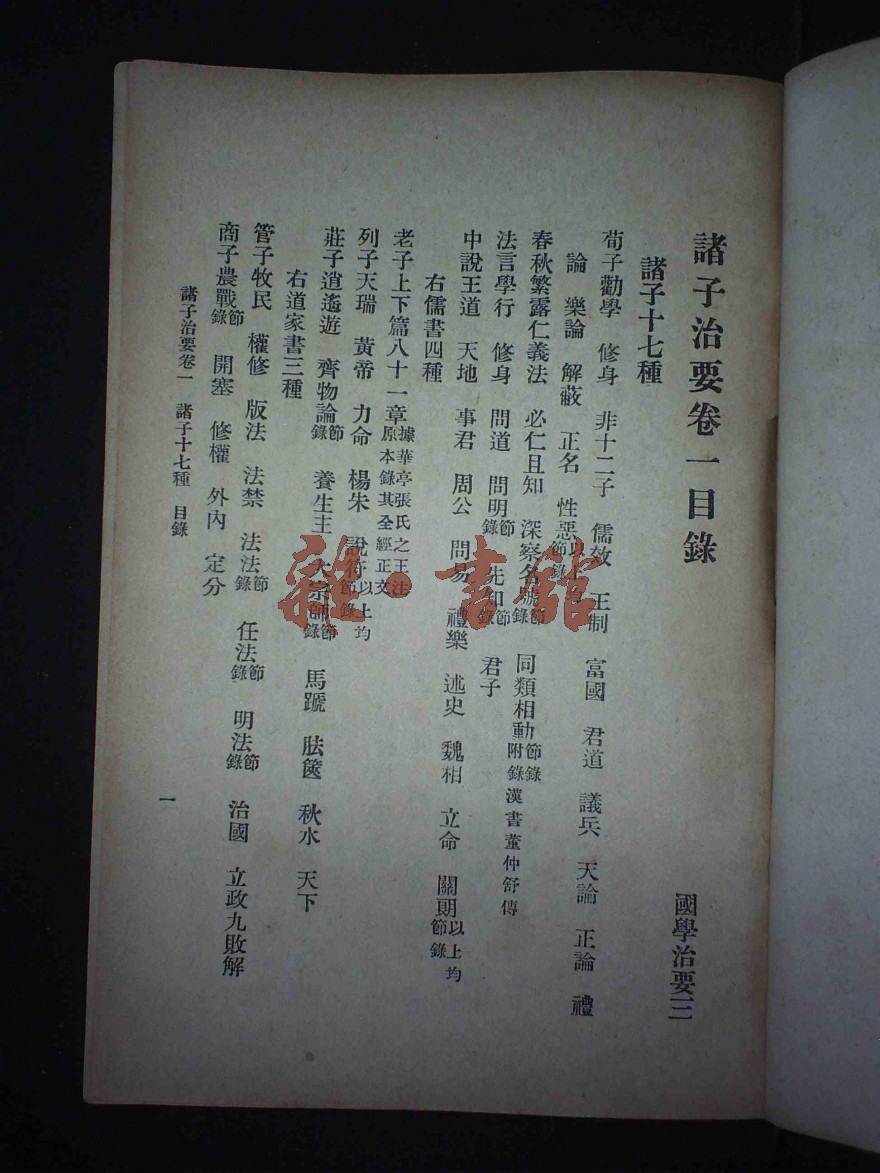 諸子治要卷一目錄
國學治要三
諸子十七種
荀子勸學 修身 非十二子 儒效 王制 富國 君道 議兵 天論 正論 禮
論 樂論 解蔽 正名 性惡以上均節錄
春秋繁露仁義法 必仁且知 深察名號節錄 同類相動節錄附錄漢書董仲舒傳
法言學行 修身 問道 問明節錄 先知節錄 君子
中說王道 天地 事君 周公 問易 禮樂 述史 魏相 立命 關朗以上均節錄
右儒書四種
老子上下篇八十一章據華亭張氏之王注原本錄其全經正文
列子天瑞 黃帝 力命 楊朱 說符以上均節錄
莊子逍遙遊 齊物論節錄 養生主 大宗師節錄 馬蹏 胠篋 秋水 天下
右道家書三種
管子牧民 權修 版法 法禁 法法節錄 任法節錄 明法節錄 治國 立政九敗解
商子農戰節錄 開塞 修權 外內 定分
諸子治要卷一 諸子十七種 目錄
一
雜·書館